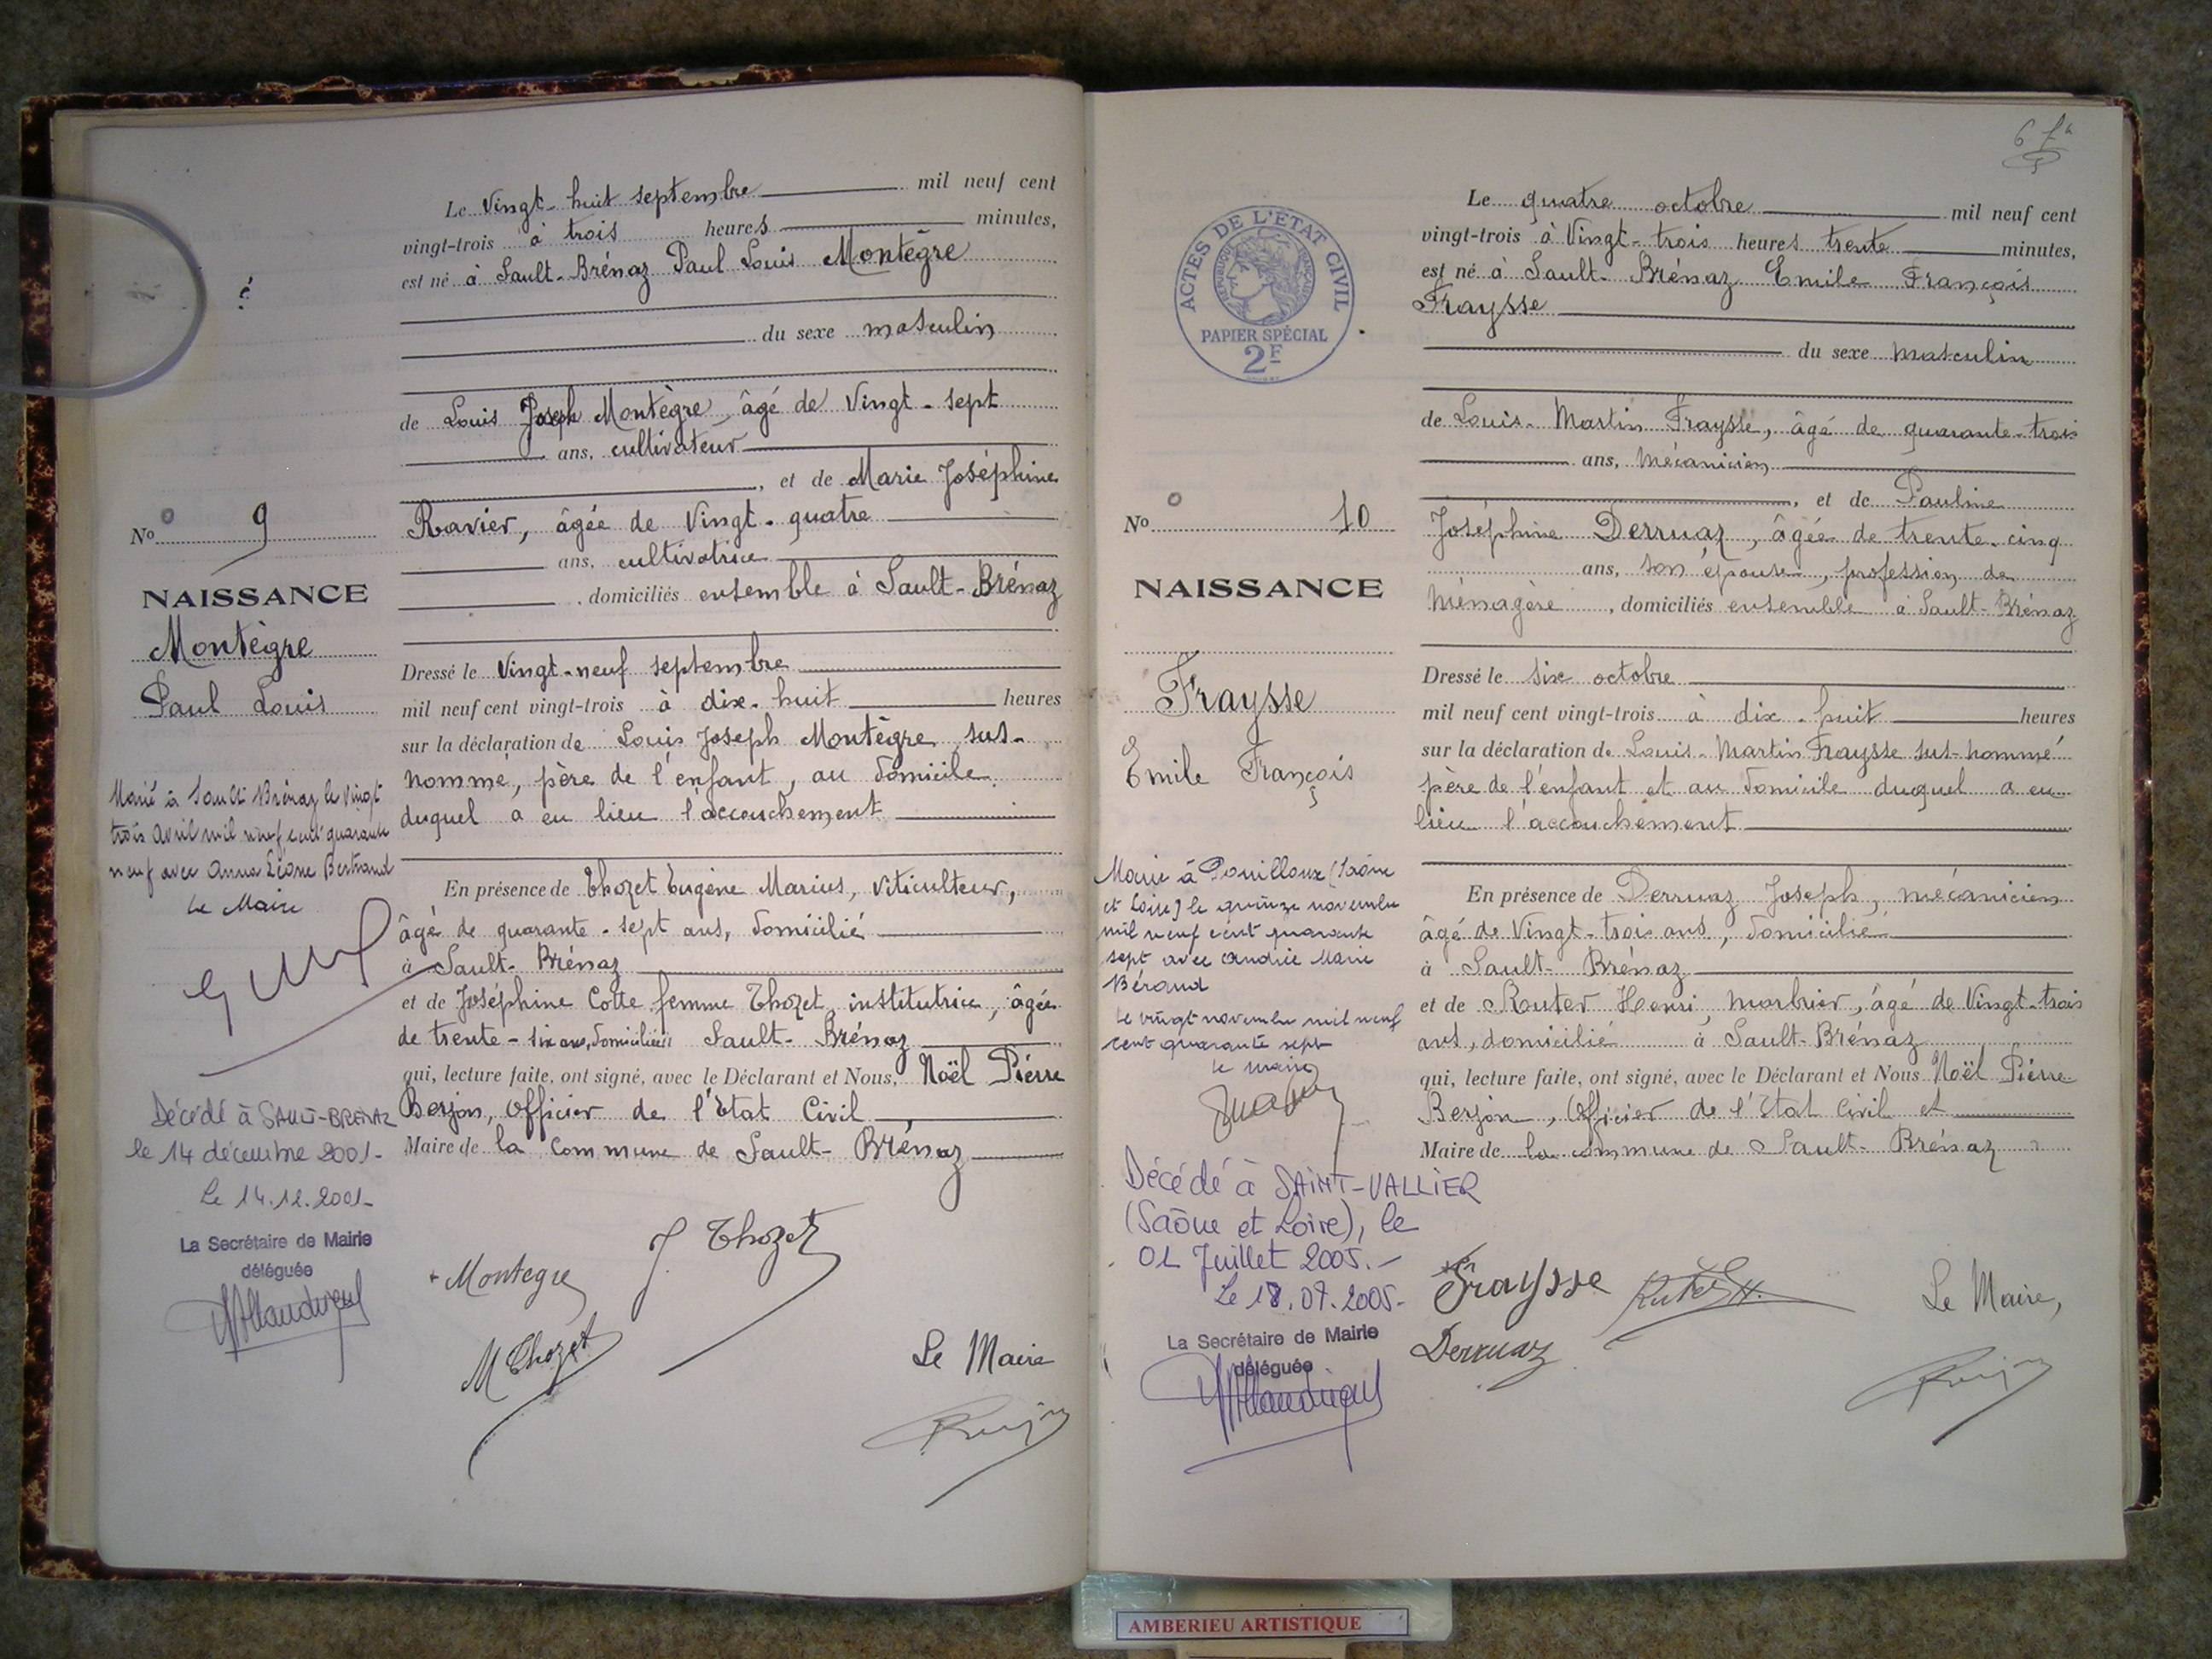 Le Vingt-huit septembre mil neuf cent
vingt-trois à trois heures minutes,
est né à Sault-Brénaz Paul Louis Montègre
du sexe masculin
de Louis Joseph Montègre, âgé de Vingt-sept
ans, cultivateur
, et de Marie Joséphine
Ravier, âgée de Vingt-quatre
ans, cultivatrice
, domiciliés ensemble à Sault-Brénaz
No 9
NAISSANCE
Montègre
Paul Louis
Dressé le Vingt-neuf septembre
mil neuf cent vingt-trois à dix-huit heures
sur la déclaration de Louis Joseph Montègre sus-
nommé, père de l'enfant, au domicile
duquel a eu lieu l'accouchement
Marié à Sault Brénaz le vingt
trois avril mil neuf cent quarante
neuf avec Anna Léone Bertrand
Le Maire
En présence de Thozet Eugène Marius, viticulteur,
âgé de quarante-sept ans, domicilié
à Sault-Brénaz
et de Joséphine Cotte femme Thozet, institutrice, âgée
de trente-six ans, domiciliée à Sault-Brénaz
qui, lecture faite, ont signé, avec le Déclarant et Nous, Noël Pierre
Berjon, Officier de l'Etat Civil
Maire de la Commune de Sault-Brénaz
Décédé à SAULT-BRENAZ
le 14 décembre 2001-
Le 14.12.2001-
La Secrétaire de Mairie
déléguée
Montegre
J Thozet
M Thozet
Le Maire
6
Le quatre octobre mil neuf cent
vingt-trois à Vingt-trois heures trente minutes,
est né à Sault-Brénaz Emile François
Fraysse
du sexe masculin
ACTES DE L'ÉTAT CIVIL
RÉPUBLIQUE FRANÇAISE
PAPIER SPÉCIAL
2F
de Louis-Martin Fraysse, âgé de quarante-trois
ans, mécanicien
, et de Pauline
Joséphine Derruaz, âgée de trente-cinq
ans, son épouse, profession de
ménagère, domiciliés ensemble à Sault-Brénaz
No 10
NAISSANCE
Fraysse
Emile François
Dressé le six octobre
mil neuf cent vingt-trois à dix-huit heures
sur la déclaration de Louis-Martin Fraysse sus-nommé
père de l'enfant et au domicile duquel a eu
lieu l'accouchement
Marié à Pouilloux (Saône
et Loire) le quinze novembre
mil neuf cent quarante
sept avec Andrée Marie
Béraud
Le vingt novembre mil neuf
cent quarante sept
Le maire
En présence de Derruaz Joseph, mécanicien
âgé de Vingt-trois ans, domicilié
à Sault-Brénaz
et de Router Henri, marbrier, âgé de Vingt-trois
ans, domicilié à Sault-Brénaz
qui, lecture faite, ont signé, avec le Déclarant et Nous Noël Pierre
Berjon, Officier de l'Etat Civil et
Maire de la commune de Sault-Brénaz
Décédé à SAINT-VALLIER
(Saône et Loire), le
01 Juillet 2005.-
Le 18.07.2005-
La Secrétaire de Mairie
déléguée
Fraysse
Derruaz
Le Maire,
AMBERIEU ARTISTIQUE